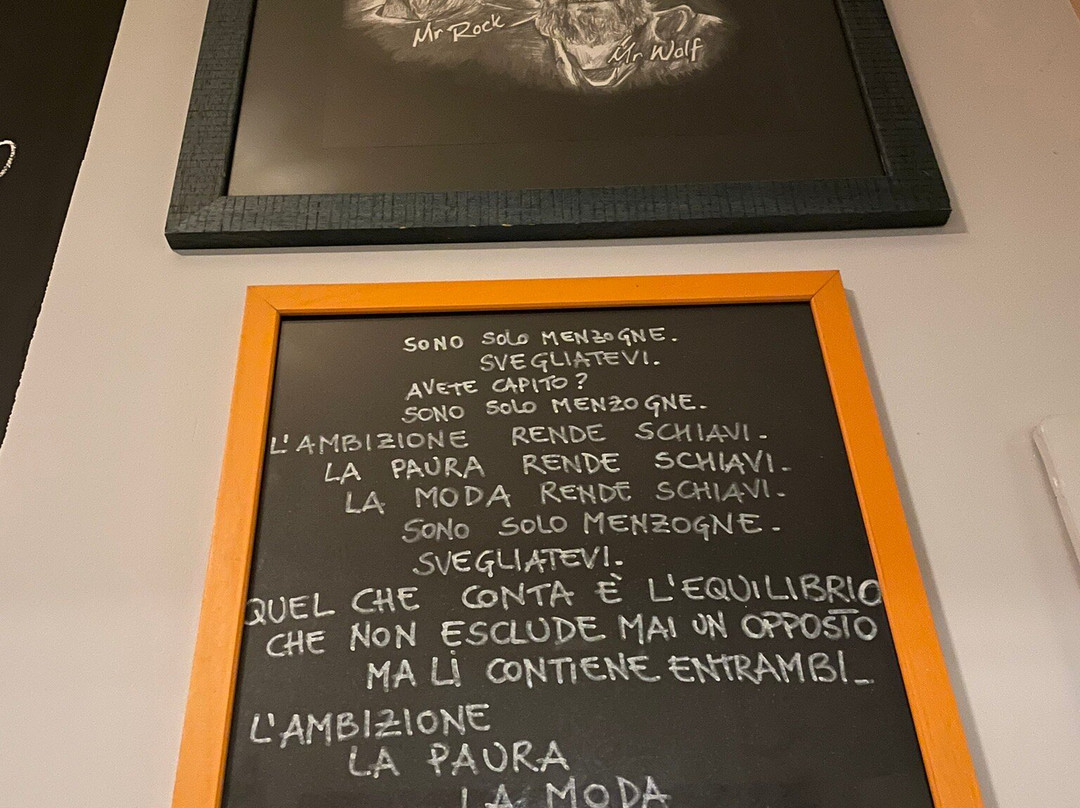 Mr Rock
Mr Wolf
SONO SOLO MENZOGNE.
SVEGLIATEVI.
AVETE CAPITO?
SONO SOLO MENZOGNE.
L'AMBIZIONE RENDE SCHIAVI.
LA PAURA RENDE SCHIAVI.
LA MODA RENDE SCHIAVI.
SONO SOLO MENZOGNE.
SVEGLIATEVI.
QUEL CHE CONTA È L'EQUILIBRIO
CHE NON ESCLUDE MAI UN OPPOSTO
MA LI CONTIENE ENTRAMBI_
L'AMBIZIONE
LA PAURA
LA MODA